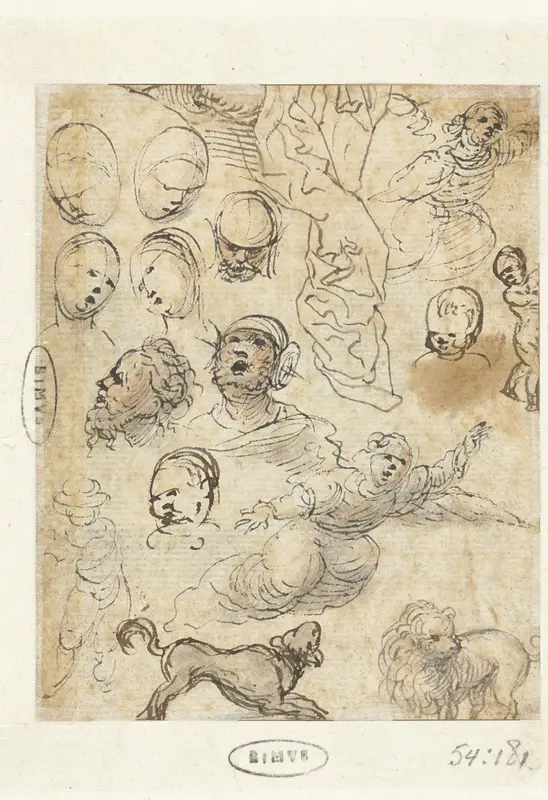 RIMVS
RIMVS
54:181